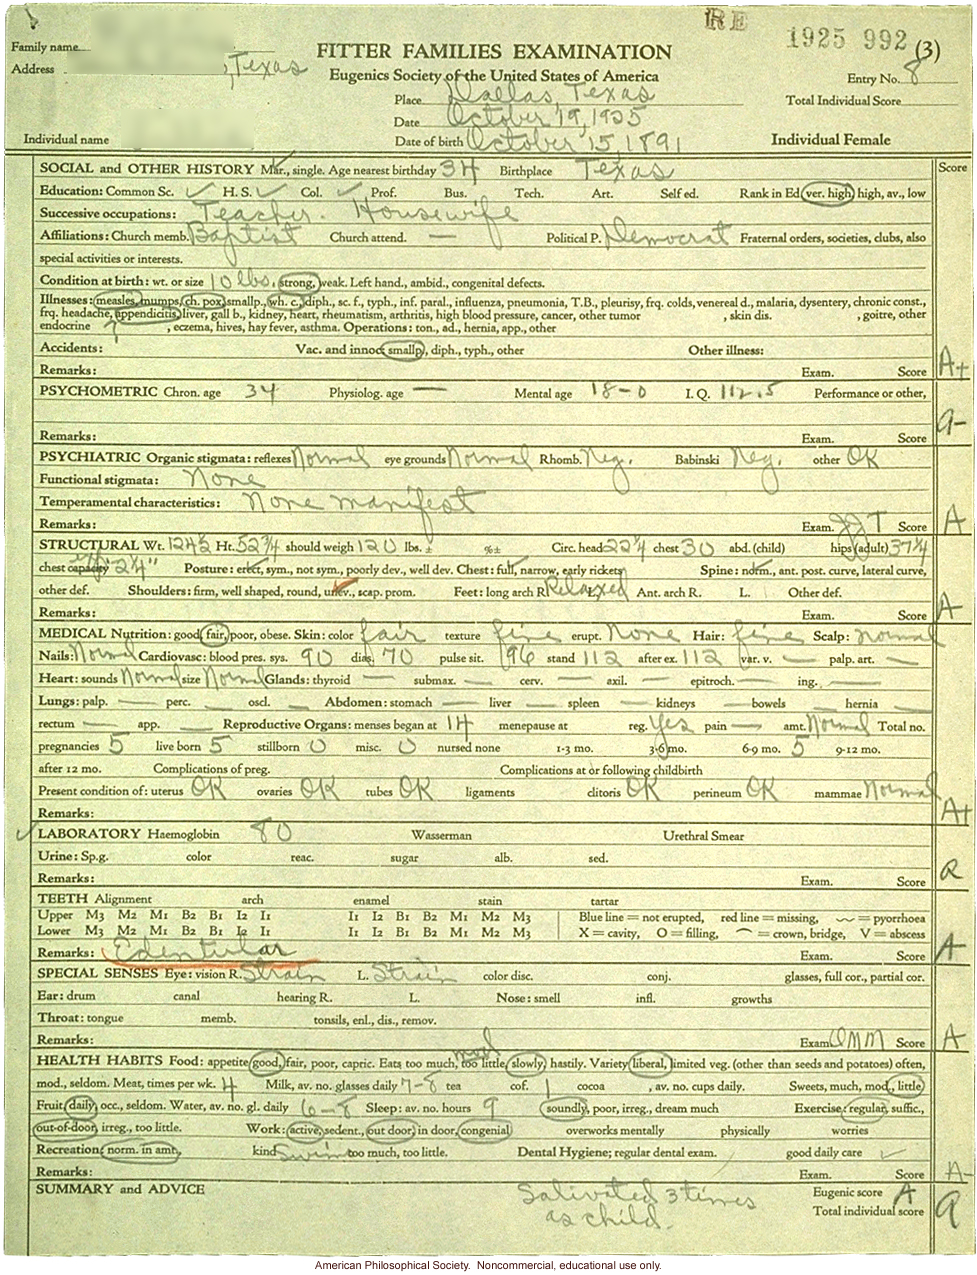 RE
1925 992 (3)
Family name
FITTER FAMILIES EXAMINATION
Address , Texas
Eugenics Society of the United States of America
Entry No. 8
Place Dallas, Texas
Total Individual Score
Date October 19, 1925
Individual name
Date of birth October 15, 1891
Individual Female
SOCIAL and OTHER HISTORY Mar., single. Age nearest birthday 34 Birthplace Texas Score
Education: Common Sc. ✓ H. S. ✓ Col. ✓ Prof. Bus. Tech. Art. Self ed. Rank in Ed. ver. high, high, av., low
Successive occupations: Teacher. Housewife
Affiliations: Church memb. Baptist Church attend. — Political P. Democrat Fraternal orders, societies, clubs, also
special activities or interests.
Condition at birth: wt. or size 10 lbs, strong, weak. Left hand., ambid., congenital defects.
Illnesses: measles, mumps, ch. pox, smallp., wh. c., diph., sc. f., typh., inf. paral., influenza, pneumonia, T.B., pleurisy, frq. colds, venereal d., malaria, dysentery, chronic const.,
frq. headache, appendicitis, liver, gall b., kidney, heart, rheumatism, arthritis, high blood pressure, cancer, other tumor , skin dis. , goitre, other
endocrine ? , eczema, hives, hay fever, asthma. Operations: ton., ad., hernia, app., other
Accidents: Vac. and innoc. smallp., diph., typh., other Other illness:
Remarks: Exam. Score A+
PSYCHOMETRIC Chron. age 34 Physiolog. age — Mental age 18-0 I. Q. 112.5 Performance or other,
Remarks: Exam. Score A-
PSYCHIATRIC Organic stigmata: reflexes Normal eye grounds Normal Rhomb. Neg. Babinski Neg. other OK
Functional stigmata: None
Temperamental characteristics: None manifest
Remarks: Exam. JJT Score A
STRUCTURAL Wt. 124½ Ht. 52¾ should weigh 120 lbs. ± %± Circ. head 22¼ chest 30 abd. (child) hips (adult) 37¼
chest capacity 2¼" Posture: erect, sym., not sym., poorly dev., well dev. Chest: full, narrow, early rickets Spine: norm., ant. post. curve, lateral curve,
other def. Shoulders: firm, well shaped, round, unev., scap. prom. Feet: long arch R. Relaxed Ant. arch R. L. Other def.
Remarks: Exam. Score A
MEDICAL Nutrition: good, fair, poor, obese. Skin: color fair texture fine erupt. None Hair: fine Scalp: normal
Nails: Normal Cardiovasc: blood pres. sys. 90 dias. 70 pulse sit. 96 stand 112 after ex. 112 var. v. — palp. art. —
Heart: sounds Normal size Normal Glands: thyroid — submax. — cerv. — axil. — epitroch. — ing. —
Lungs: palp. — perc. — oscl. — Abdomen: stomach — liver — spleen — kidneys — bowels — hernia —
rectum — app. — Reproductive Organs: menses began at 14 menepause at reg. Yes pain — amt. Normal Total no.
pregnancies 5 live born 5 stillborn 0 misc. 0 nursed none 1-3 mo. 3-6 mo. 6-9 mo. 5 9-12 mo.
after 12 mo. Complications of preg. Complications at or following childbirth
Present condition of: uterus OK ovaries OK tubes OK ligaments clitoris OK perineum OK mammae Normal
Remarks: A+
✓ LABORATORY Haemoglobin 80 Wasserman Urethral Smear
Urine: Sp.g. color reac. sugar alb. sed.
Remarks: Exam. Score
TEETH Alignment arch enamel stain tartar
Upper M3 M2 M1 B2 B1 I2 I1 I1 I2 B1 B2 M1 M2 M3 Blue line = not erupted, red line = missing, = pyorrhoea
Lower M3 M2 M1 B2 B1 I2 I1 I1 I2 B1 B2 M1 M2 M3 X = cavity, O = filling, = crown, bridge, V = abscess
Remarks: Edentular Exam. Score A
SPECIAL SENSES Eye: vision R. Strain L. Strain color disc. conj. glasses, full cor., partial cor.
Ear: drum canal hearing R. L. Nose: smell infl. growths
Throat: tongue memb. tonsils, enl., dis., remov.
Remarks: Exam. OMM Score A
HEALTH HABITS Food: appetite good, fair, poor, capric. Eats too much, too little, slowly, hastily. Variety liberal, limited veg. (other than seeds and potatoes) often,
mod., seldom. Meat, times per wk. 4 Milk, av. no. glasses daily 7-8 tea cof. 1 cocoa , av. no. cups daily. Sweets, much, mod., little
Fruit daily, occ., seldom. Water, av. no. gl. daily 6-8 Sleep: av. no. hours 9 soundly, poor, irreg., dream much Exercise: regular, suffic.,
out-of-door, irreg., too little. Work: active, sedent., out door, in door, congenial overworks mentally physically worries
Recreation: norm. in amt. kind Swim too much, too little. Dental Hygiene; regular dental exam. good daily care ✓
Remarks: Exam. Score A-
SUMMARY and ADVICE Salivated 3 times Eugenic score A
as child. Total individual score
American Philosophical Society. Noncommercial, educational use only.